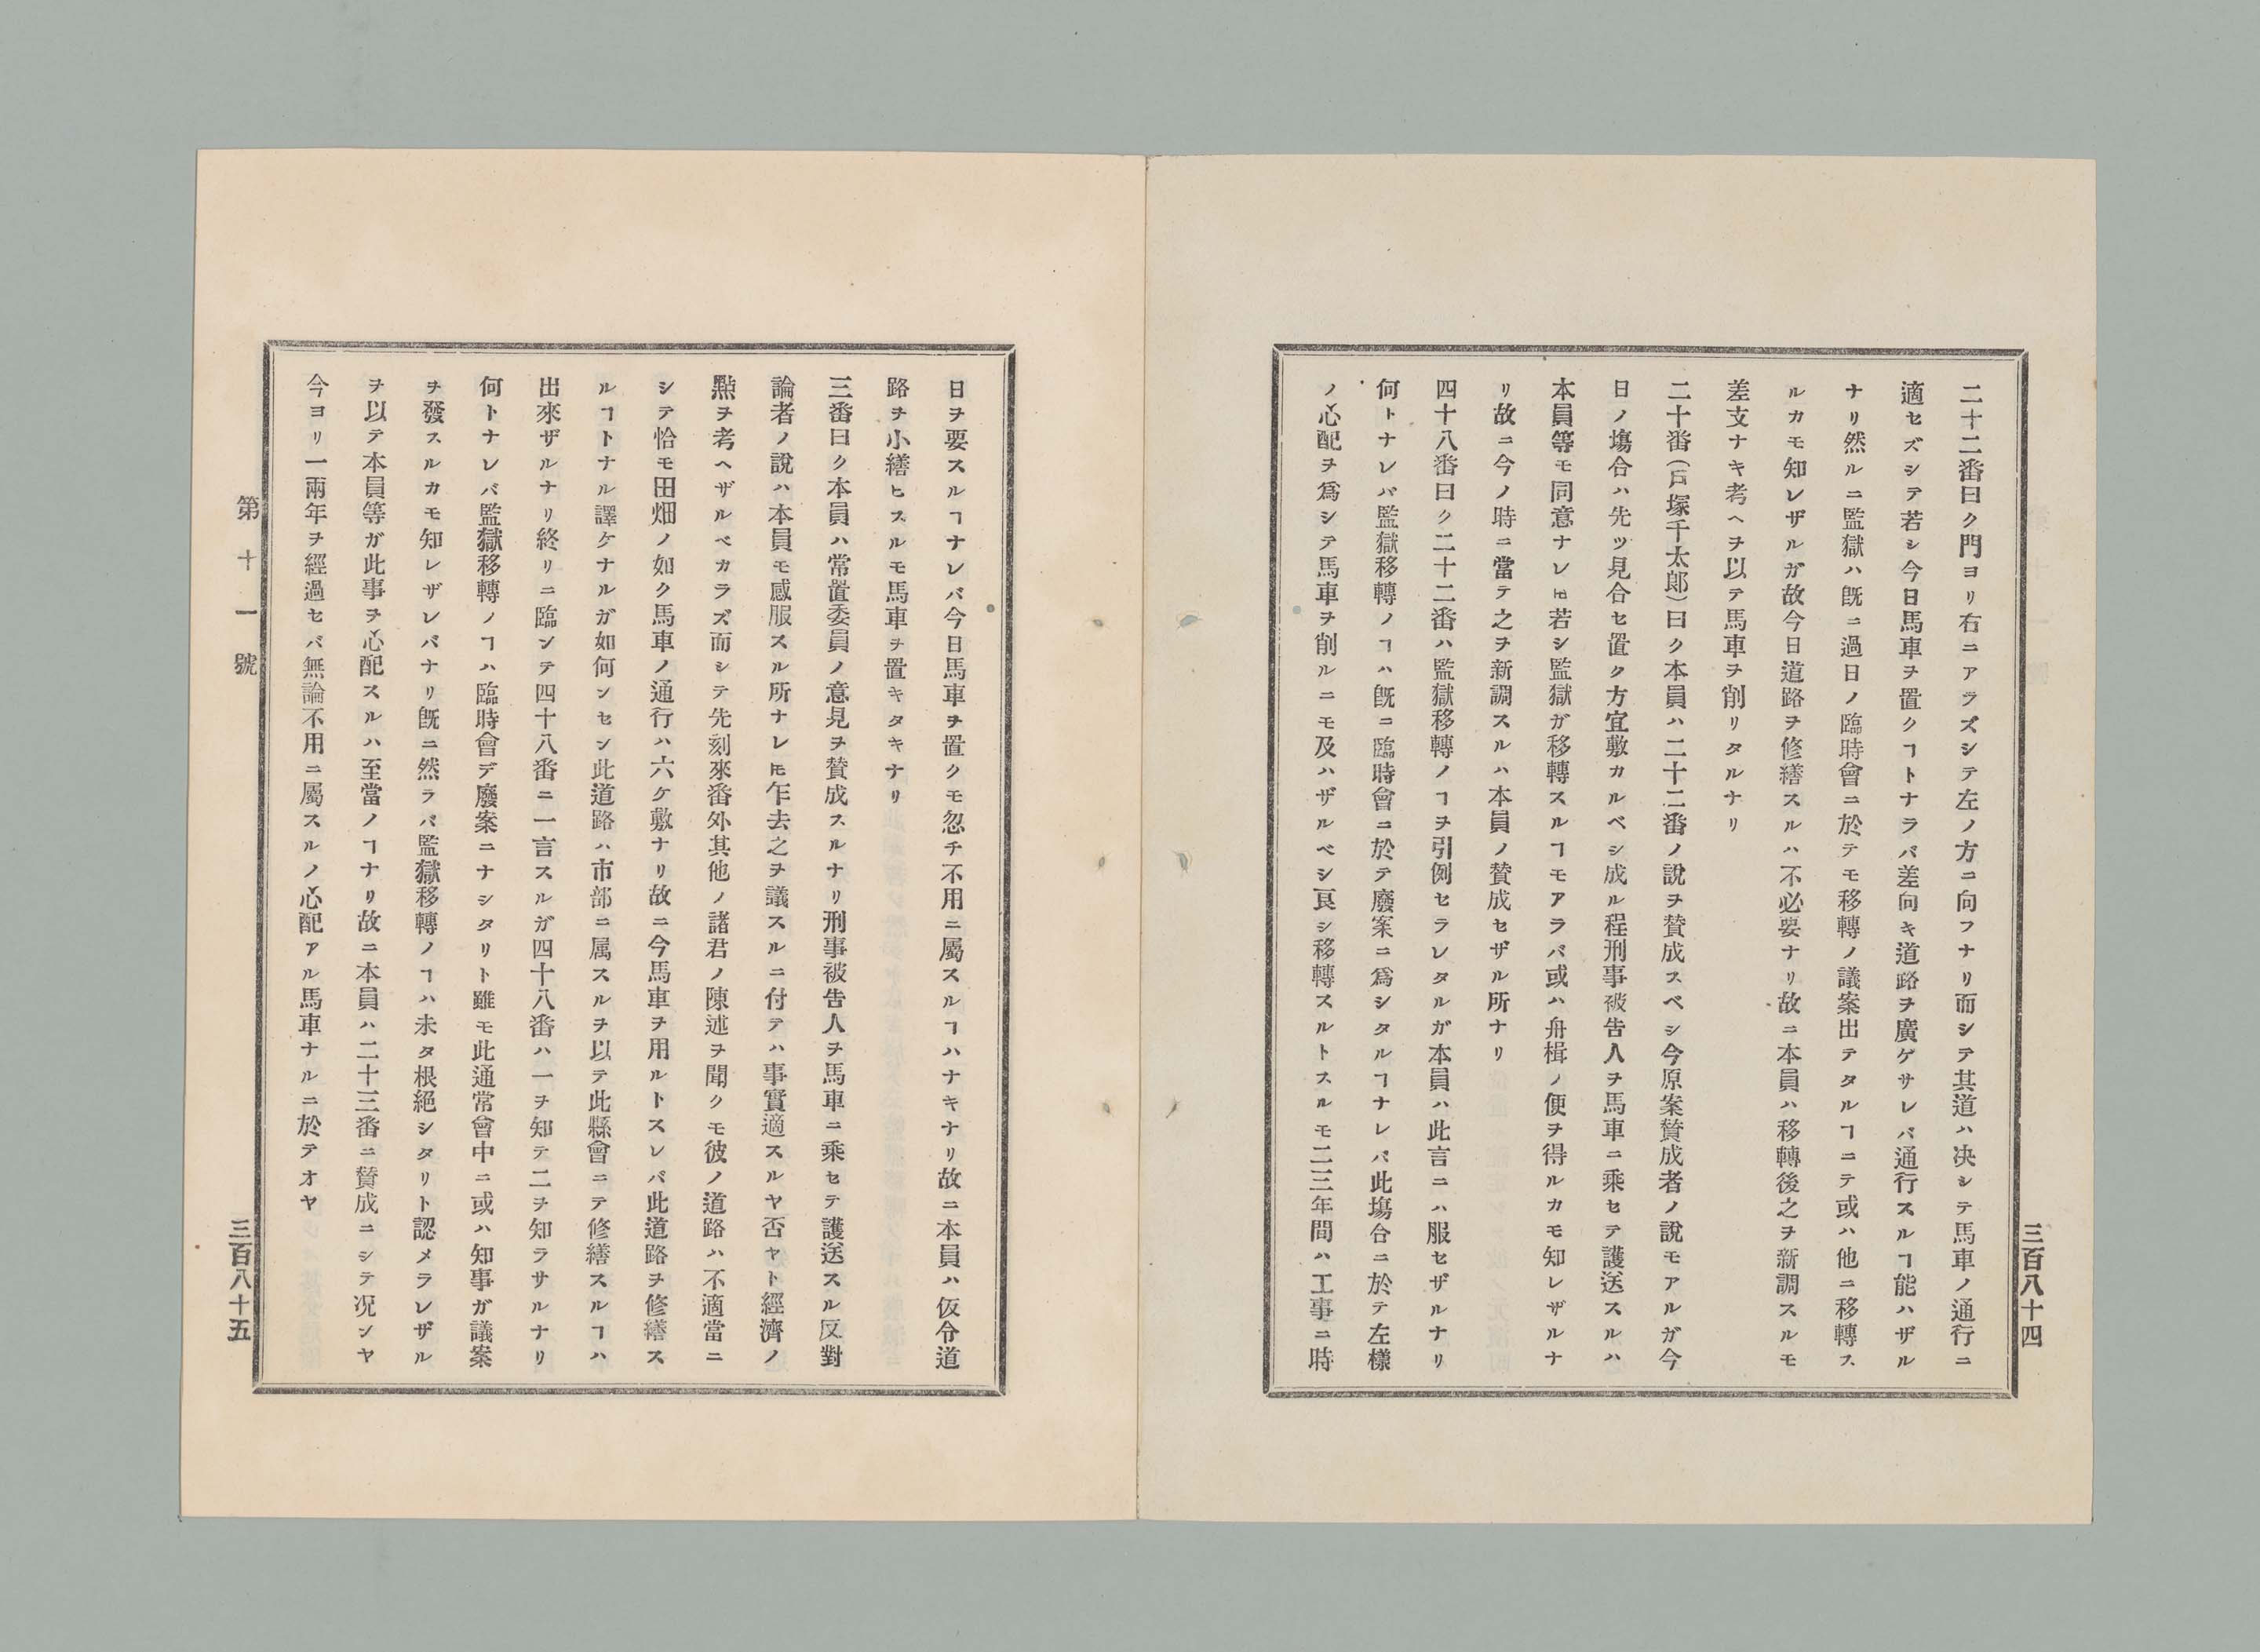 三百八十四
二十二番曰ク門ヨリ右ニアラズシテ左ノ方ニ向フナリ而シテ其道ハ决シテ馬車ノ通行ニ
適セズシテ若シ今日馬車ヲ置クヿトナラバ差向キ道路ヲ廣ゲサレバ通行スルヿ能ハザル
ナリ然ルニ監獄ハ旣ニ過日ノ臨時會ニ於テモ移轉ノ議案出テタルヿニテ或ハ他ニ移轉ス
ルカモ知レザルガ故今日道路ヲ修繕スルハ不必要ナリ故ニ本員ハ移轉後之ヲ新調スルモ
差支ナキ考ヘヲ以テ馬車ヲ削リタルナリ
二十番(戸塚千太郞)曰ク本員ハ二十二番ノ說ヲ賛成スベシ今原案賛成者ノ說モアルガ今
日ノ塲合ハ先ツ見合セ置ク方宜敷カルベシ成ル程刑事被告人ヲ馬車ニ乘セテ護送スルハ
本員等モ同意ナレ𪜈若シ監獄ガ移轉スルヿモアラバ或ハ舟楫ノ便ヲ得ルカモ知レザルナ
リ故ニ今ノ時ニ當テ之ヲ新調スルハ本員ノ賛成セザル所ナリ
四十八番曰ク二十二番ハ監獄移轉ノヿヲ引例セラレタルガ本員ハ此言ニハ服セザルナリ
何トナレバ監獄移轉ノヿハ旣ニ臨時會ニ於テ廢案ニ爲シタルヿナレバ此塲合ニ於テ左樣
ノ心配ヲ爲シテ馬車ヲ削ルニモ及ハザルベシ亙シ移轉スルトスルモ二三年間ハ工事ニ時
日ヲ要スルヿナレバ今日馬車ヲ置クモ忽チ不用ニ屬スルヿハナキナリ故ニ本員ハ仮令道
路ヲ小繕ヒスルモ馬車ヲ置キタキナリ
三番曰ク本員ハ常置委員ノ意見ヲ賛成スルナリ刑事被告人ヲ馬車ニ乘セテ護送スル反對
論者ノ說ハ本員モ感服スル所ナレ𪜈乍去之ヲ議スルニ付テハ事實適スルヤ否ヤト經濟ノ
㸃ヲ考ヘザルベカラズ而シテ先刻來番外其他ノ諸君ノ陳述ヲ聞クモ彼ノ道路ハ不適當ニ
シテ恰モ田畑ノ如ク馬車ノ通行ハ六ケ敷ナリ故ニ今馬車ヲ用ルトスレバ此道路ヲ修繕ス
ルヿトナル譯ケナルガ如何ンセン此道路ハ市部ニ属スルヲ以テ此縣會ニテ修繕スルヿハ
出來ザルナリ終リニ臨ンテ四十八番ニ一言スルガ四十八番ハ一ヲ知テ二ヲ知ラサルナリ
何トナレバ監獄移轉ノヿハ臨時會デ廢案ニナシタリト雖モ此通常會中ニ或ハ知事ガ議案
ヲ發スルカモ知レザレバナリ旣ニ然ラバ監獄移轉ノヿハ未タ根絕シタリト認メラレザル
ヲ以テ本員等ガ此事ヲ心配スルハ至當ノヿナリ故ニ本員ハ二十三番ニ賛成ニシテ況ンヤ
今ヨリ一兩年ヲ經過セバ無論不用ニ屬スルノ心配アル馬車ナルニ於テオヤ
第十一號
三百八十五